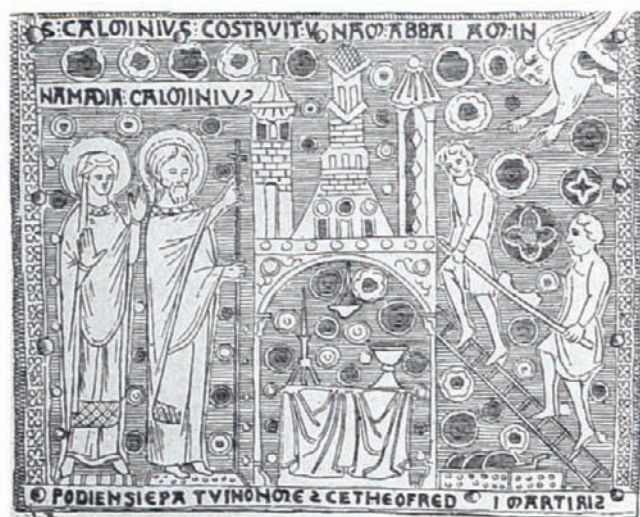 S: CALMINIVS: COSTRVIT: V NAM: ABBAI AM: IN
NAMADIA: CALMINIVS
PODIENSI EPA TV IN ONORE S CE THEOFRED I MARTIRIS